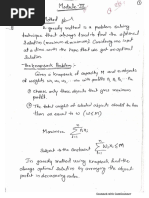 Module-III
Method
A greedy method is a problem solving
technique that always tend to find the optimal
solution (minimum or maximum) considering one input
at a time with the hope that we get an optimal
solution.
The knapsack Problem:-
Given a knapsack of capacity M and n objects
of weights w₁, w₂, ... wₙ with profits P₁, P₂, ... Pₙ.
Choose only those objects that give maximum
profit.
The total weight of selected objects should be less
than or equal to M i.e ≤ M
Maximize Σ
i=1
Subject to the constraint Σ ≤ M
i=1
In greedy method using knapsack find the
always optimal solution by arranging the object
profit in decreasing order.